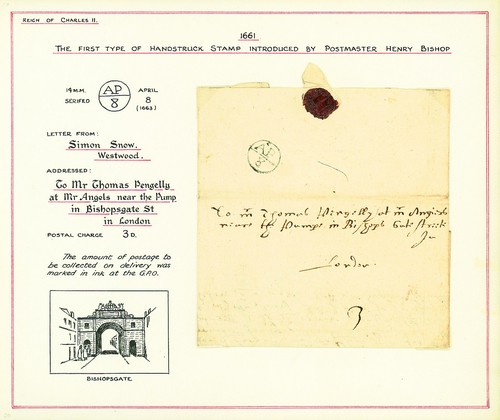 REIGN OF CHARLES II.
1661
THE FIRST TYPE OF HANDSTRUCK STAMP INTRODUCED BY POSTMASTER HENRY BISHOP
14 M.M. SERIFED
AP
8
APRIL
8
(1663)
LETTER FROM:
Simon Snow.
Westwood.
ADDRESSED:
To Mr Thomas Pengelly
at Mr Angels near the Pump
in Bishopsgate St
in London
POSTAL CHARGE 3 D.
The amount of postage to
be collected on delivery was
marked in ink at the G.P.O.
BISHOPSGATE
AP
8
To mr Thomas Pengelly at mr Angels
neare the Pumpe in Bishops Gate streete
In
London.
3